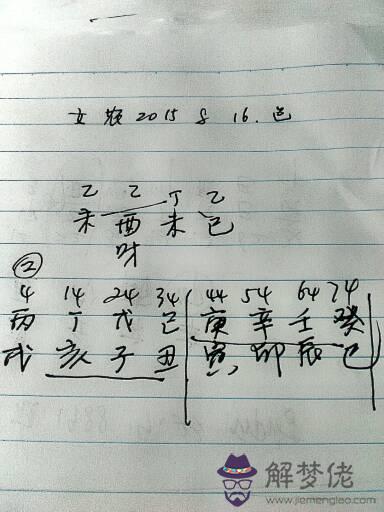 女 农 2015 8 16. 巳
乙 乙 丁 乙
未 酉 未 巳
②
4 14 24 34 44 54 64 74
丙 丁 戊 己 庚 辛 壬 癸
戌 亥 子 丑 寅 卯 辰 巳
解梦佬
www.jiemenglao.com